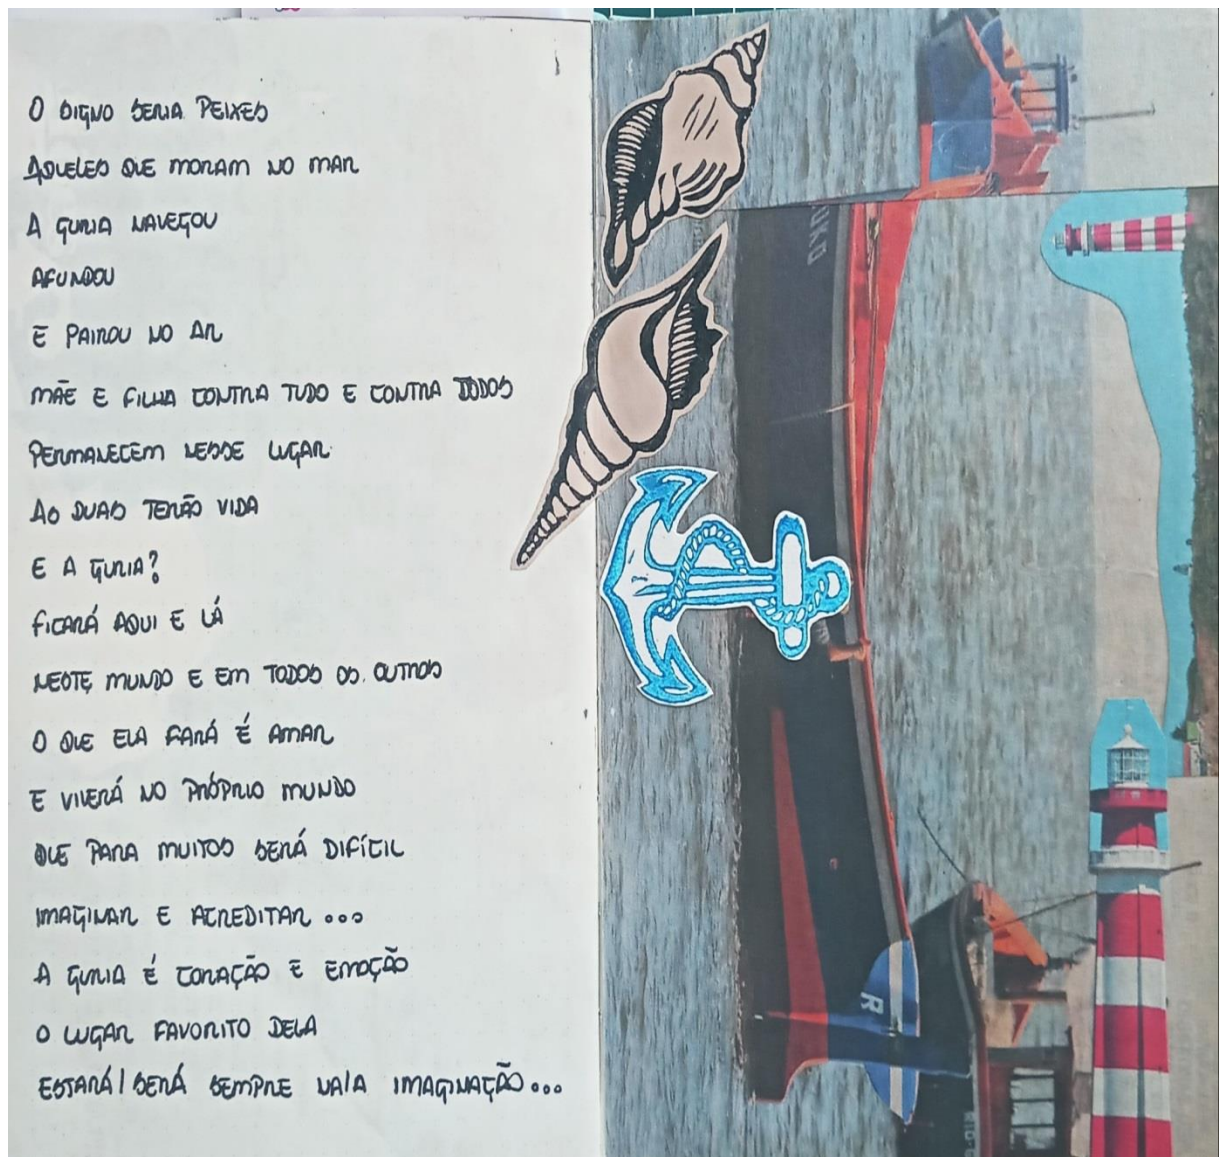 O SIGNO SERIA PEIXES
AQUELES QUE MORAM NO MAR
A GURIA NAVEGOU
AFUNDOU
E PAIROU NO AR
MÃE E FILHA CONTRA TUDO E CONTRA TODOS
PERMANECEM NESSE LUGAR.
AS DUAS TERÃO VIDA
E A GURIA?
FICARÁ AQUI E LÁ
NESTE MUNDO E EM TODOS OS OUTROS
O QUE ELA FARÁ É AMAR
E VIVERÁ NO PRÓPRIO MUNDO
QUE PARA MUITOS SERÁ DIFÍCIL
IMAGINAR E ACREDITAR...
A GURIA É CORAÇÃO E EMOÇÃO
O LUGAR FAVORITO DELA
ESTARÁ/SERÁ SEMPRE NA/A IMAGINAÇÃO...
R